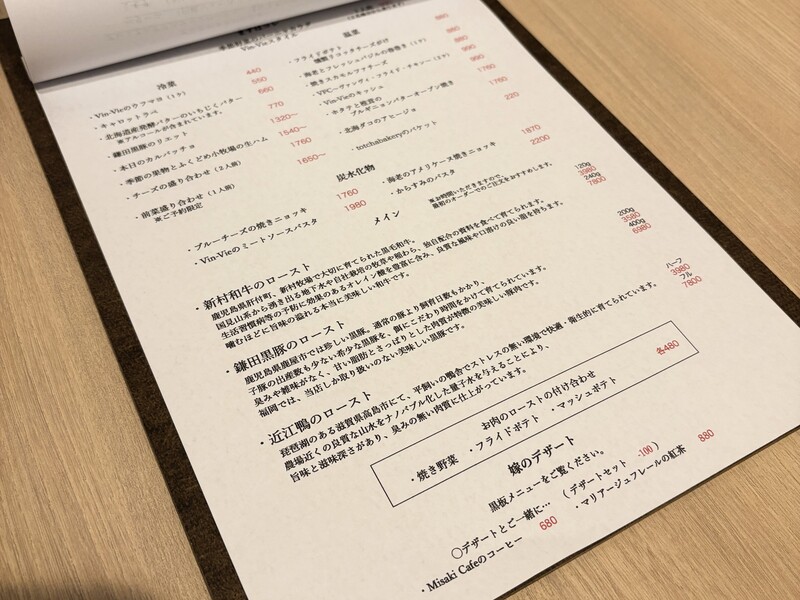 季節野菜の
Vin-Vieスタイル
冷菜
・Vin-Vieのウフマヨ（1ケ） 440
・キャロットラペ 550
・北海道産発酵バターのいちじくバター 660
※アルコールが含まれています。
・鎌田黒豚のリエット 770
・本日のカルパッチョ 1320～
・季節の果物とふくどめ小牧場の生ハム 1540～
・チーズの盛り合わせ（2人前） 1760
・前菜盛り合わせ（1人前） 1650～
※ご予約限定
温菜
・フライドポテト
燻製リコッタチーズがけ 880
・海老とフレッシュバジルの春巻き（1ケ）
・焼きスカモルツァチーズ
・VPC～ヴァンヴィ・フライド・チキン～（3ケ） 990
・Vin-Vieのキッシュ
・ホタテと椎茸の
ブルギニョンバターオーブン焼き 1760
・北海ダコのアヒージョ 1760
・totchabakeryのバゲット 220
炭水化物
・ブルーチーズの焼きニョッキ 1760
・Vin-Vieのミートソースパスタ 1980
・海老のアメリケーヌ焼きニョッキ 1870
・からすみのパスタ 2200
メイン
※お時間いただきますので、
最初のオーダーでのご注文をおすすめします。
・新村和牛のロースト
120g 3980
240g 7800
鹿児島県肝付町、新村牧場で大切に育てられた黒毛和牛。
国見山系から湧き出る地下水や自社栽培の牧草や稲わら、独自配合の資料を食べて育てられます。
生活習慣病等の予防に効果のあるオレイン酸を豊富に含み、良質な風味や口溶けの良い脂を持ちます。
噛むほどに旨味の溢れる本当に美味しい和牛です。
・鎌田黒豚のロースト
200g 3580
400g 6980
鹿児島県鹿屋市では珍しい黒豚。通常の豚より飼育日数もかかり、
子豚の出産数も少ない希少な黒豚を、餌にこだわり時間をかけて育てられています。
臭みや雑味がなく、甘い脂肪とさっぱりとした肉質が特徴の美味しい豚肉です。
福岡では、当店しか取り扱いのない美味しい黒豚です。
・近江鴨のロースト
ハーフ 3980
フル 7800
琵琶湖のある滋賀県高島市にて、平飼いの鴨舎でストレスの無い環境で快適・衛生的に育てられています。
農場近くの良質な山水をナノバブル化した量子水を与えることにより、
旨味と滋味深さがあり、臭みの無い肉質に仕上がっています。
お肉のローストの付け合わせ 各480
・焼き野菜 ・フライドポテト ・マッシュポテト
嫁のデザート
黒板メニューをご覧ください。
〇デザートとご一緒に…（デザートセット -100）
・Misaki Cafeのコーヒー 680
・マリアージュフレールの紅茶 880